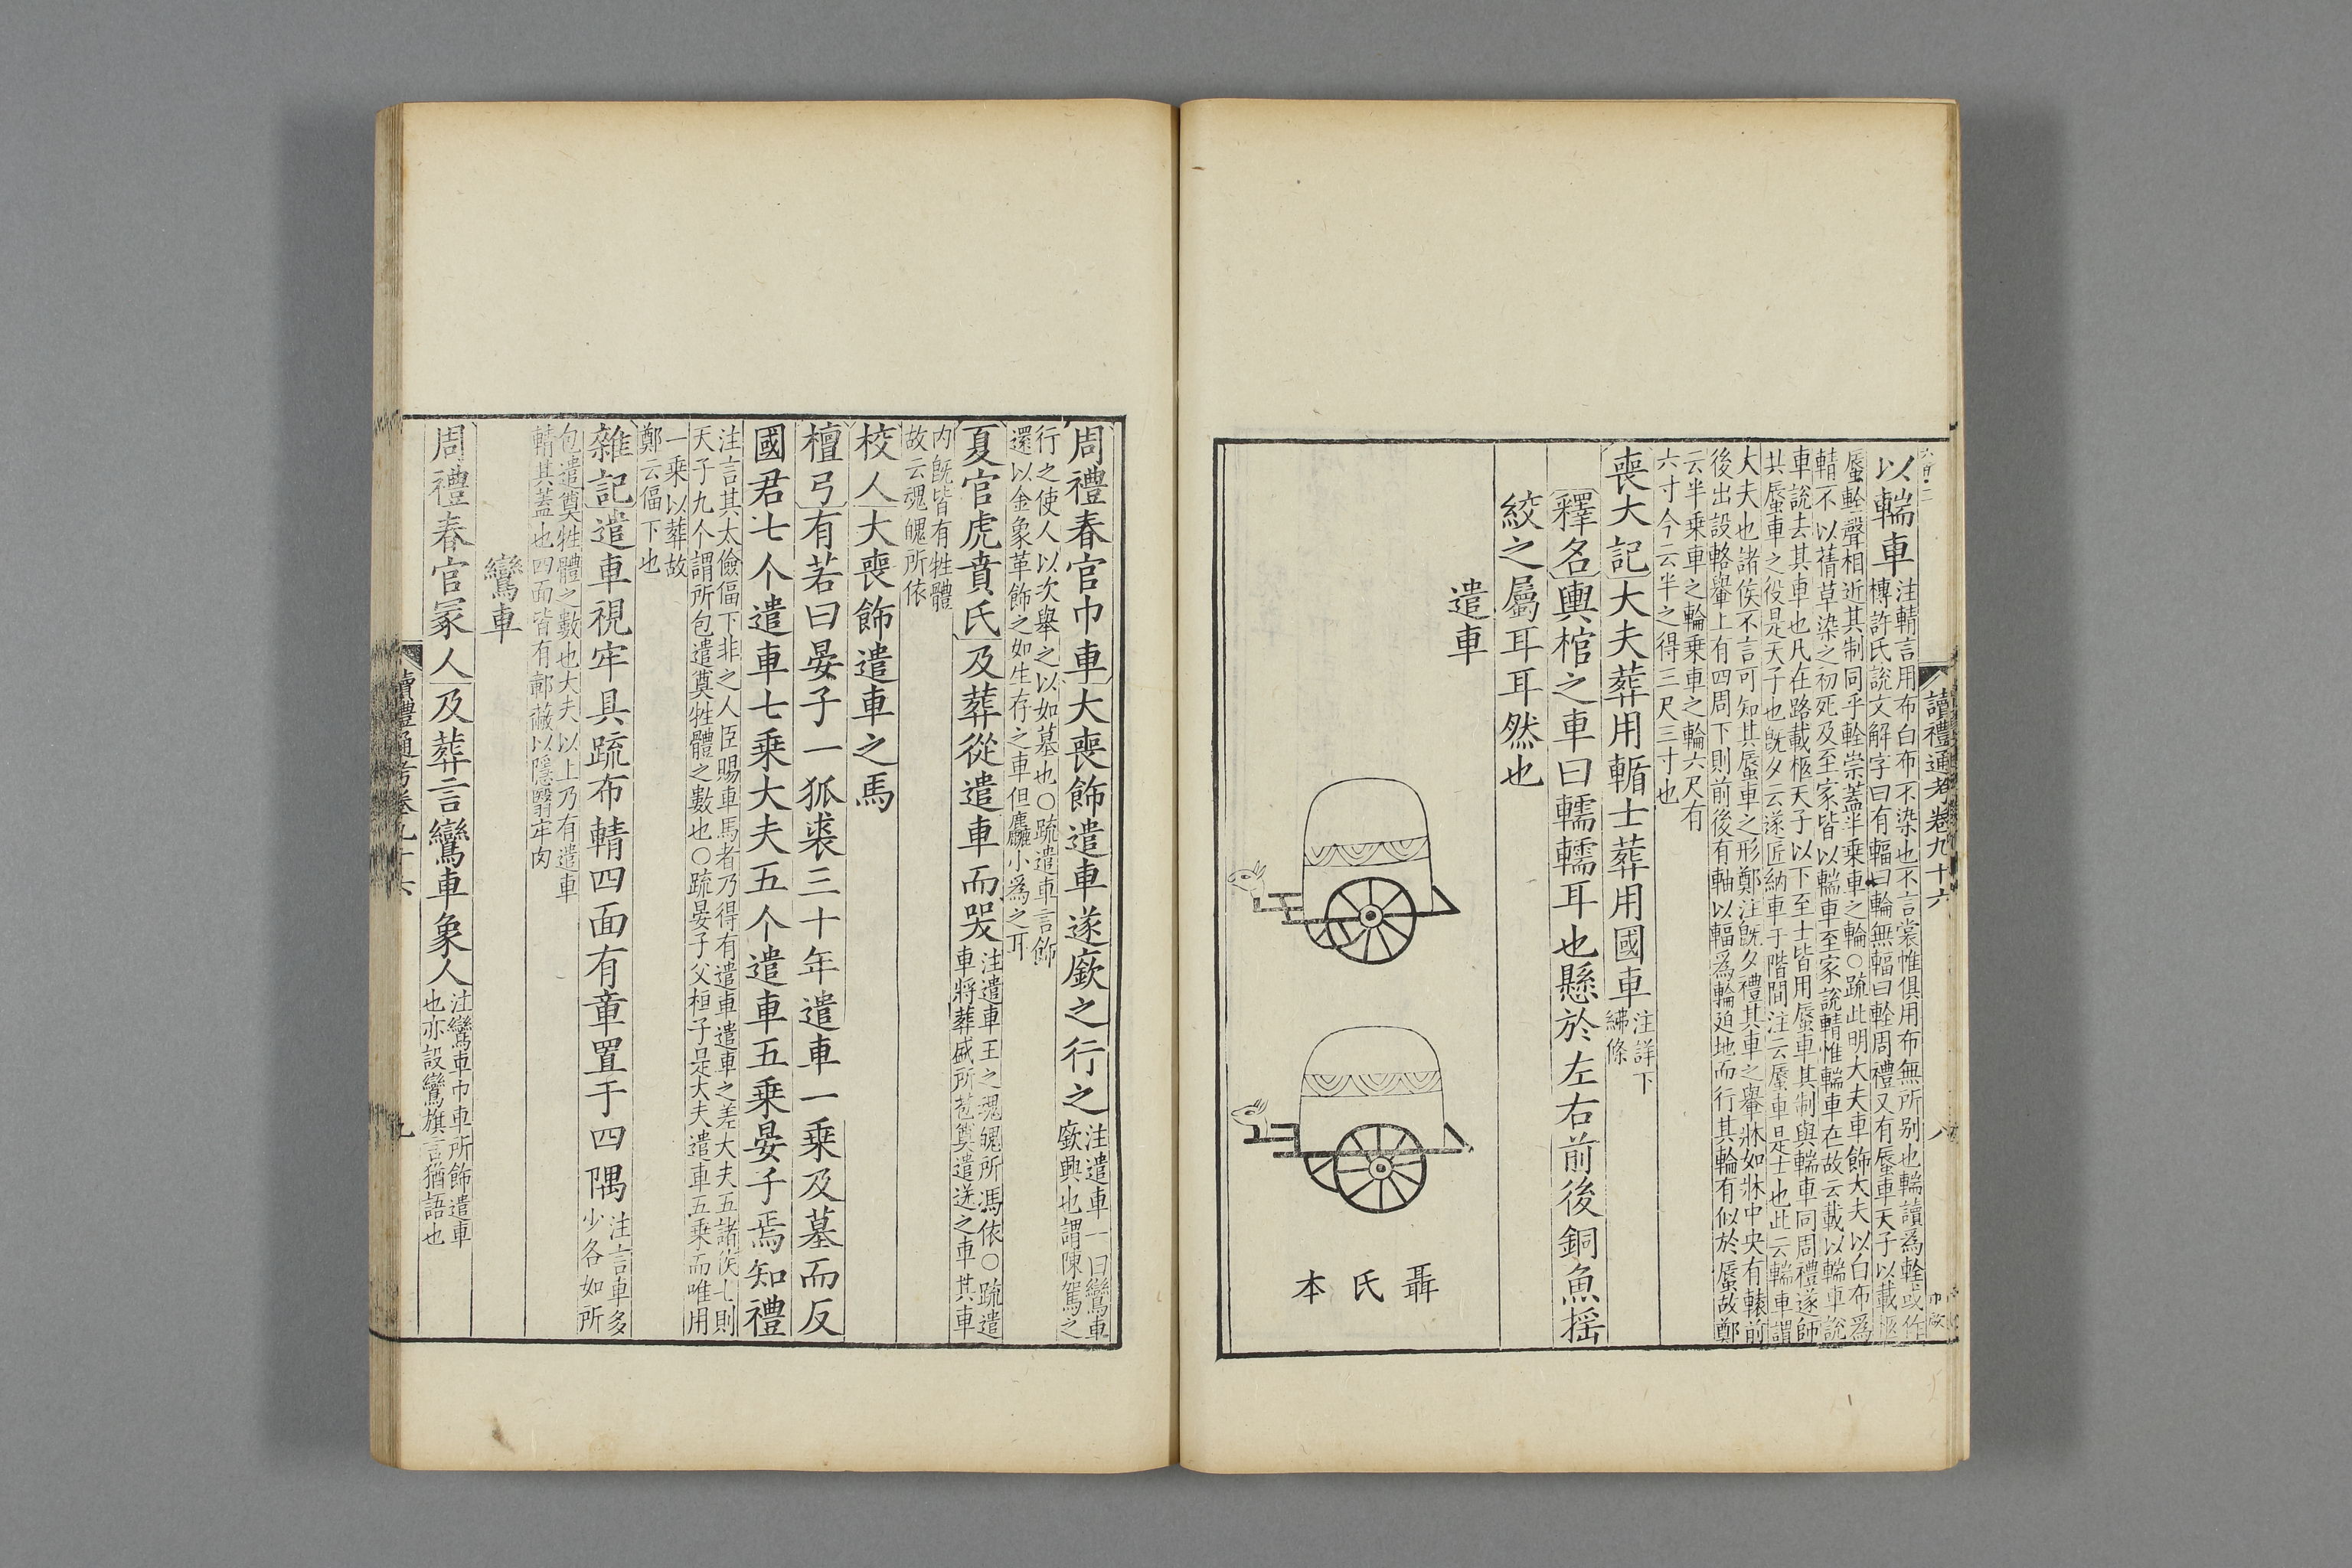 讀禮通考卷九十六
八
以輲車
注輤言用布白布不染也不言裳帷俱用布無所別也輲讀為輇或作
槫許氏說文解字曰有輻曰輪無輻曰輇周禮又有蜃車天子以載柩
蜃輇聲相近其制同乎輇崇蓋半乘車之輪○疏此明大夫車飾大夫以白布為
輤不以蒨草染之初死及至家皆以輲車至家說輤惟輲車在故云載以輲車說
車說去其車也凡在路載柩天子以下至士皆用蜃車其制與輲車同周禮遂師
共蜃車之役是天子也旣夕云遂匠納車于階間注云蜃車是士也此云輲車謂
大夫也諸侯不言可知其蜃車之形鄭注旣夕禮其車之轝牀如牀中央有轅前
後出設輅轝上有四周下則前後有軸以輻為輪廹地而行其輪有似於蜃故鄭
云半乘車之輪乘車之輪六尺有
六寸今云半之得三尺三寸也
喪大記大夫葬用輴士葬用國車
注詳下
綍條
釋名輿棺之車曰轜轜耳也懸於左右前後銅魚搖
絞之屬耳耳然也
遣車
聶氏本
周禮春官巾車大喪飾遣車遂廞之行之
注遣車一曰鸞車
廞興也謂陳駕之
行之使人以次舉之以如墓也○疏遣車言飾
還以金象革飾之如生存之車但麤小為之耳
夏官虎賁氏及葬從遣車而哭
注遣車王之魂魄所馮依○疏遣
車將葬盛所苞奠遣送之車其車
內旣皆有牲體
故云魂魄所依
校人大喪飾遣車之馬
檀弓有若曰晏子一狐裘三十年遣車一乘及墓而反
國君七个遣車七乘大夫五个遣車五乘晏子焉知禮
注言其太儉偪下非之人臣賜車馬者乃得有遣車遣車之差大夫五諸侯七則
天子九个謂所包遣奠牲體之數也○疏晏子父桓子是大夫遣車五乘而唯用
一乘以葬故
鄭云偪下也
雜記遣車視牢具疏布輤四面有章置于四隅
注言車多
少各如所
包遣奠牲體之數也大夫以上乃有遣車
輤其蓋也四面皆有鄣蔽以隱翳牢肉
鸞車
周禮春官冢人及葬言鸞車象人
注鸞車巾車所飾遣車
也亦設鸞旗言猶語也
讀禮通考卷九十六
九